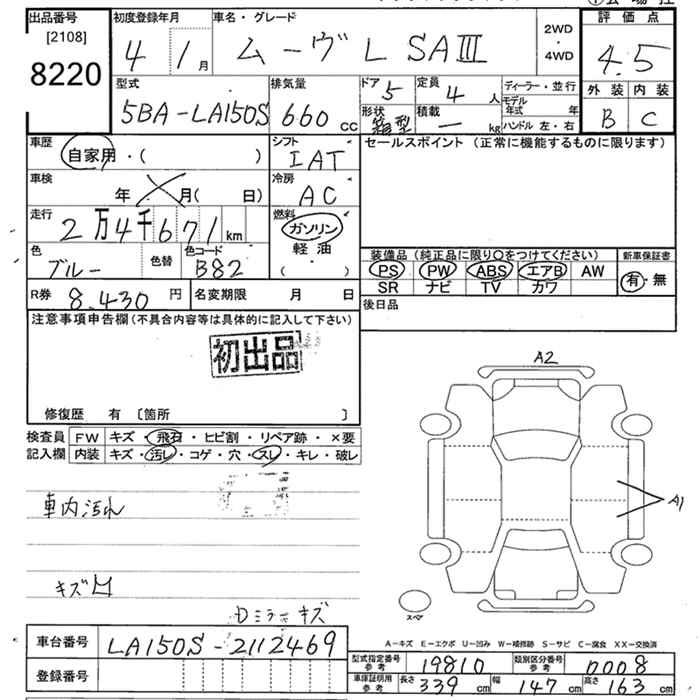 出品番号
[2108]
8220
初度登録年月
4 1月
車名・グレード
ムーヴ L SAⅢ
2WD
・
4WD
評価点
4.5
外装 内装
B C
型式
5BA-LA150S
排気量
660cc
ドア
5
定員
4人
形状
箱型
積載
― kg
ディーラー・並行
モデル年式 年
ハンドル 左・右
車歴
自家用・( )
シフト
IAT
セールスポイント(正常に機能するものに限ります)
車検
年 月( 日)
冷房
AC
走行
2万4千671km
燃料
ガソリン
軽油
( )
色
ブルー
色替
色コード
B82
装備品(純正品に限り○をつけてください)
新車保証書
PS PW ABS エアB AW
SR ナビ TV カワ
有・無
R券 8,430円
名変期限 月 日
後日品
注意事項申告欄(不具合内容等は具体的に記入して下さい)
初出品
修復歴 有 [箇所 ]
検査員
記入欄
FW キズ・飛石・ヒビ割・リペア跡・×要
内装 キズ・汚レ・コゲ・穴・スレ・キレ・破レ
車内汚れ
キズ凹
Dミラーキズ
A2
A1
スペア
A-キズ E-エクボ U-凹み W-補修跡 S-サビ C-腐食 XX-交換済
車台番号 LA150S-2112469
登録番号
型式指定番号
参考
19810
類別区分番号
参考
0008
車庫証明用
参考
長さ 339cm 幅 147cm 高さ 163cm